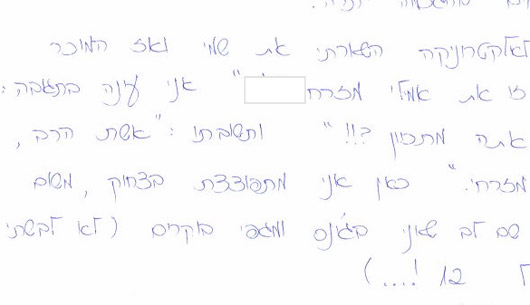 לאלקטרוניקה השארתי את שמי ואז המוכר
זו את אולי מזרחי " אני עונה בתגובה:
אתה מתכוון ?!!" ותשובתו: "אשת הרב,
מזרחי." כאן אני מתפוצצת בצחוק, משום
שם לב שאני בג'ינס ומגפי בוקרים (לא לבשתי
ל 12 !....)